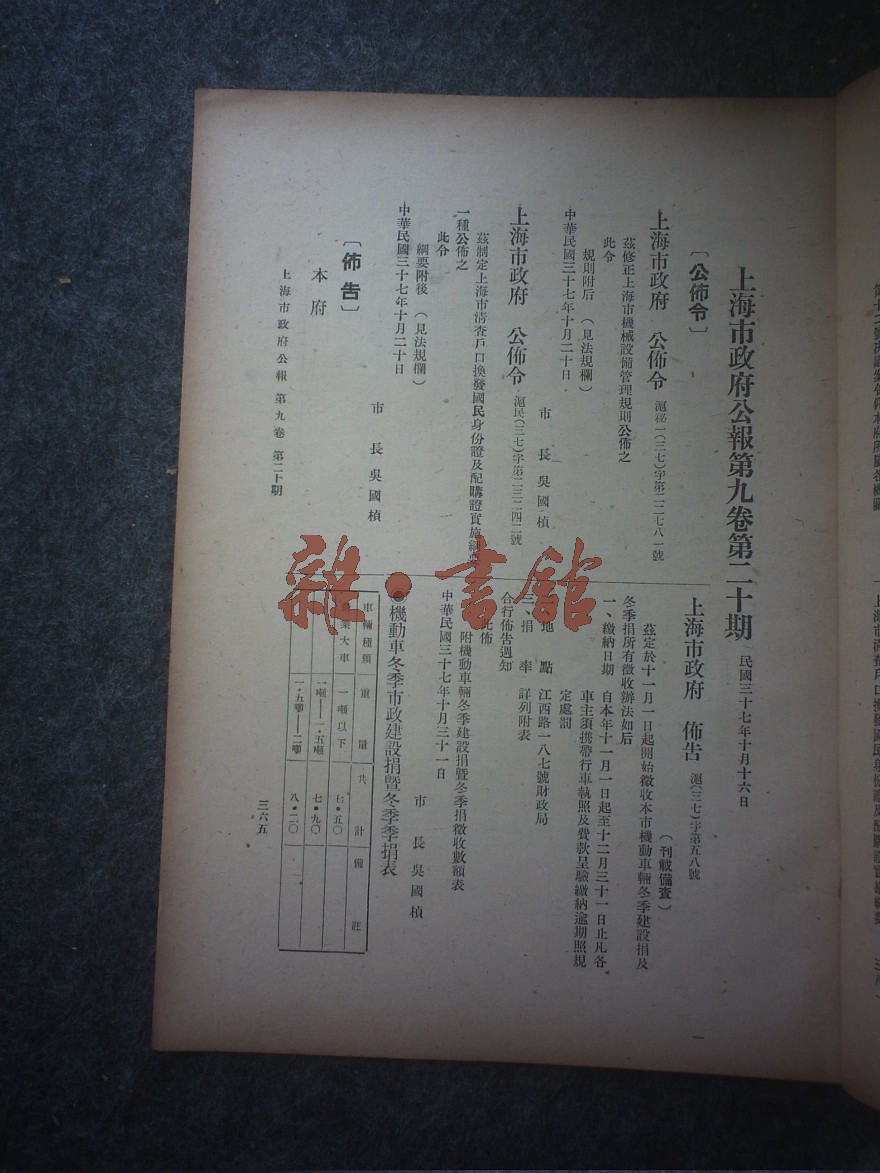 上海市政府公報第九卷第二十期 民國三十七年十月十六日
〔公佈令〕
上海市政府 公佈令 滬秘一(三七)字第二二七八一號
茲修正上海市機械設備管理規則公佈之
此令
規則附后 (見法規欄)
中華民國三十七年十月二十日
市長 吳國楨
上海市政府 公佈令 滬民(三七)字第二三二四二號
茲制定上海市清查戶口換發國民身份證及配購證實施綱要
一種公佈之
此令
綱要附後 (見法規欄)
中華民國三十七年十月二十日
市長 吳國楨
〔佈告〕
本府
上海市政府 佈告 滬(三七)字第五八號
(刊載備查)
茲定於十一月一日起開始徵收本市機動車輛冬季建設捐及
冬季捐所有徵收辦法如后
一、繳納日期 自本年十一月一日起至十二月三十一日止凡各
車主須攜帶行車執照及費款呈驗繳納逾期照規
定處罰
地 點 江西路一八七號財政局
三、捐 率 詳列附表
合行佈告週知
此佈
附機動車輛冬季建設捐暨冬季捐徵收數額表
中華民國三十七年十月三十一日
市長 吳國楨
◉機動車冬季市政建設捐暨冬季季捐表
車輛種類 重量 共計 備註
業大車 一噸以下 七·五〇
一噸——一·五噸 七·九〇
一·五噸——二噸 八·二〇
上海市政府公報 第九卷 第二十期
三六五
雜·書館